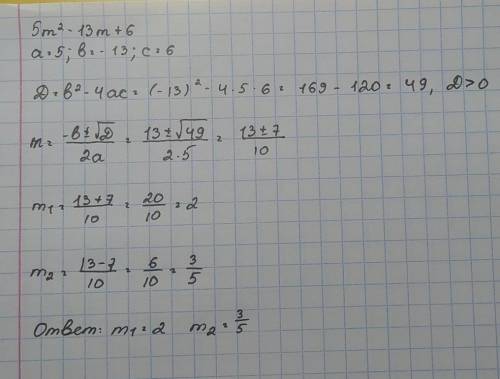 5m² - 13m + 6
a = 5; b = - 13; c = 6
D = b² - 4ac = (-13)² - 4 · 5 · 6 = 169 - 120 = 49, D > 0
m = (-b ± √D)/(2a) = (13 ± √49)/(2·5) = (13 ± 7)/10
m₁ = (13 + 7)/10 = 20/10 = 2
m₂ = (13 - 7)/10 = 6/10 = 3/5
Ответ: m₁ = 2 m₂ = 3/5